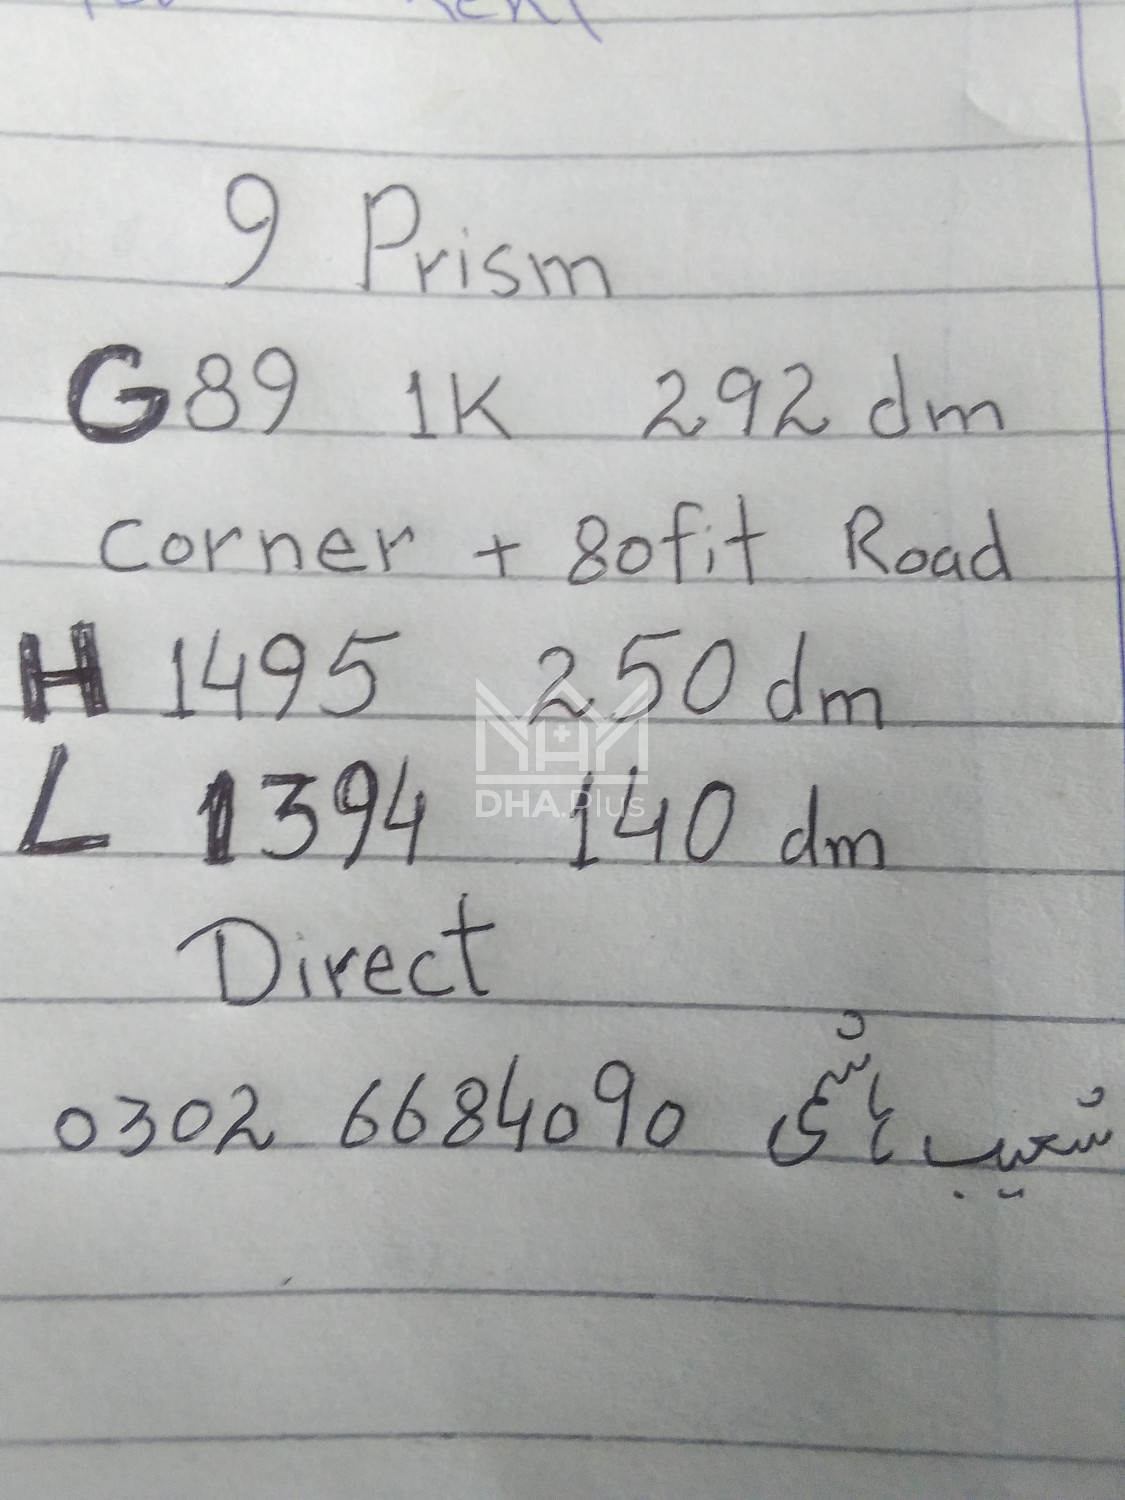 9 Prism
G 89 1K 292 dm
Corner + 80fit Road
H 1495 250 dm
L 1394 140 dm
DHA.Plus
Direct
0302 6684090 شعیب ہاشمی